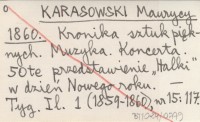 0
KARASOWSKI Maurycy
1860. Kronika sztuk pięk-
nych. Muzyka. Koncerta.
50te przedstawienie „Halki"
w dzień Nowego roku.
Tyg. Il. 1 (1859-1860) nr 15: 117.